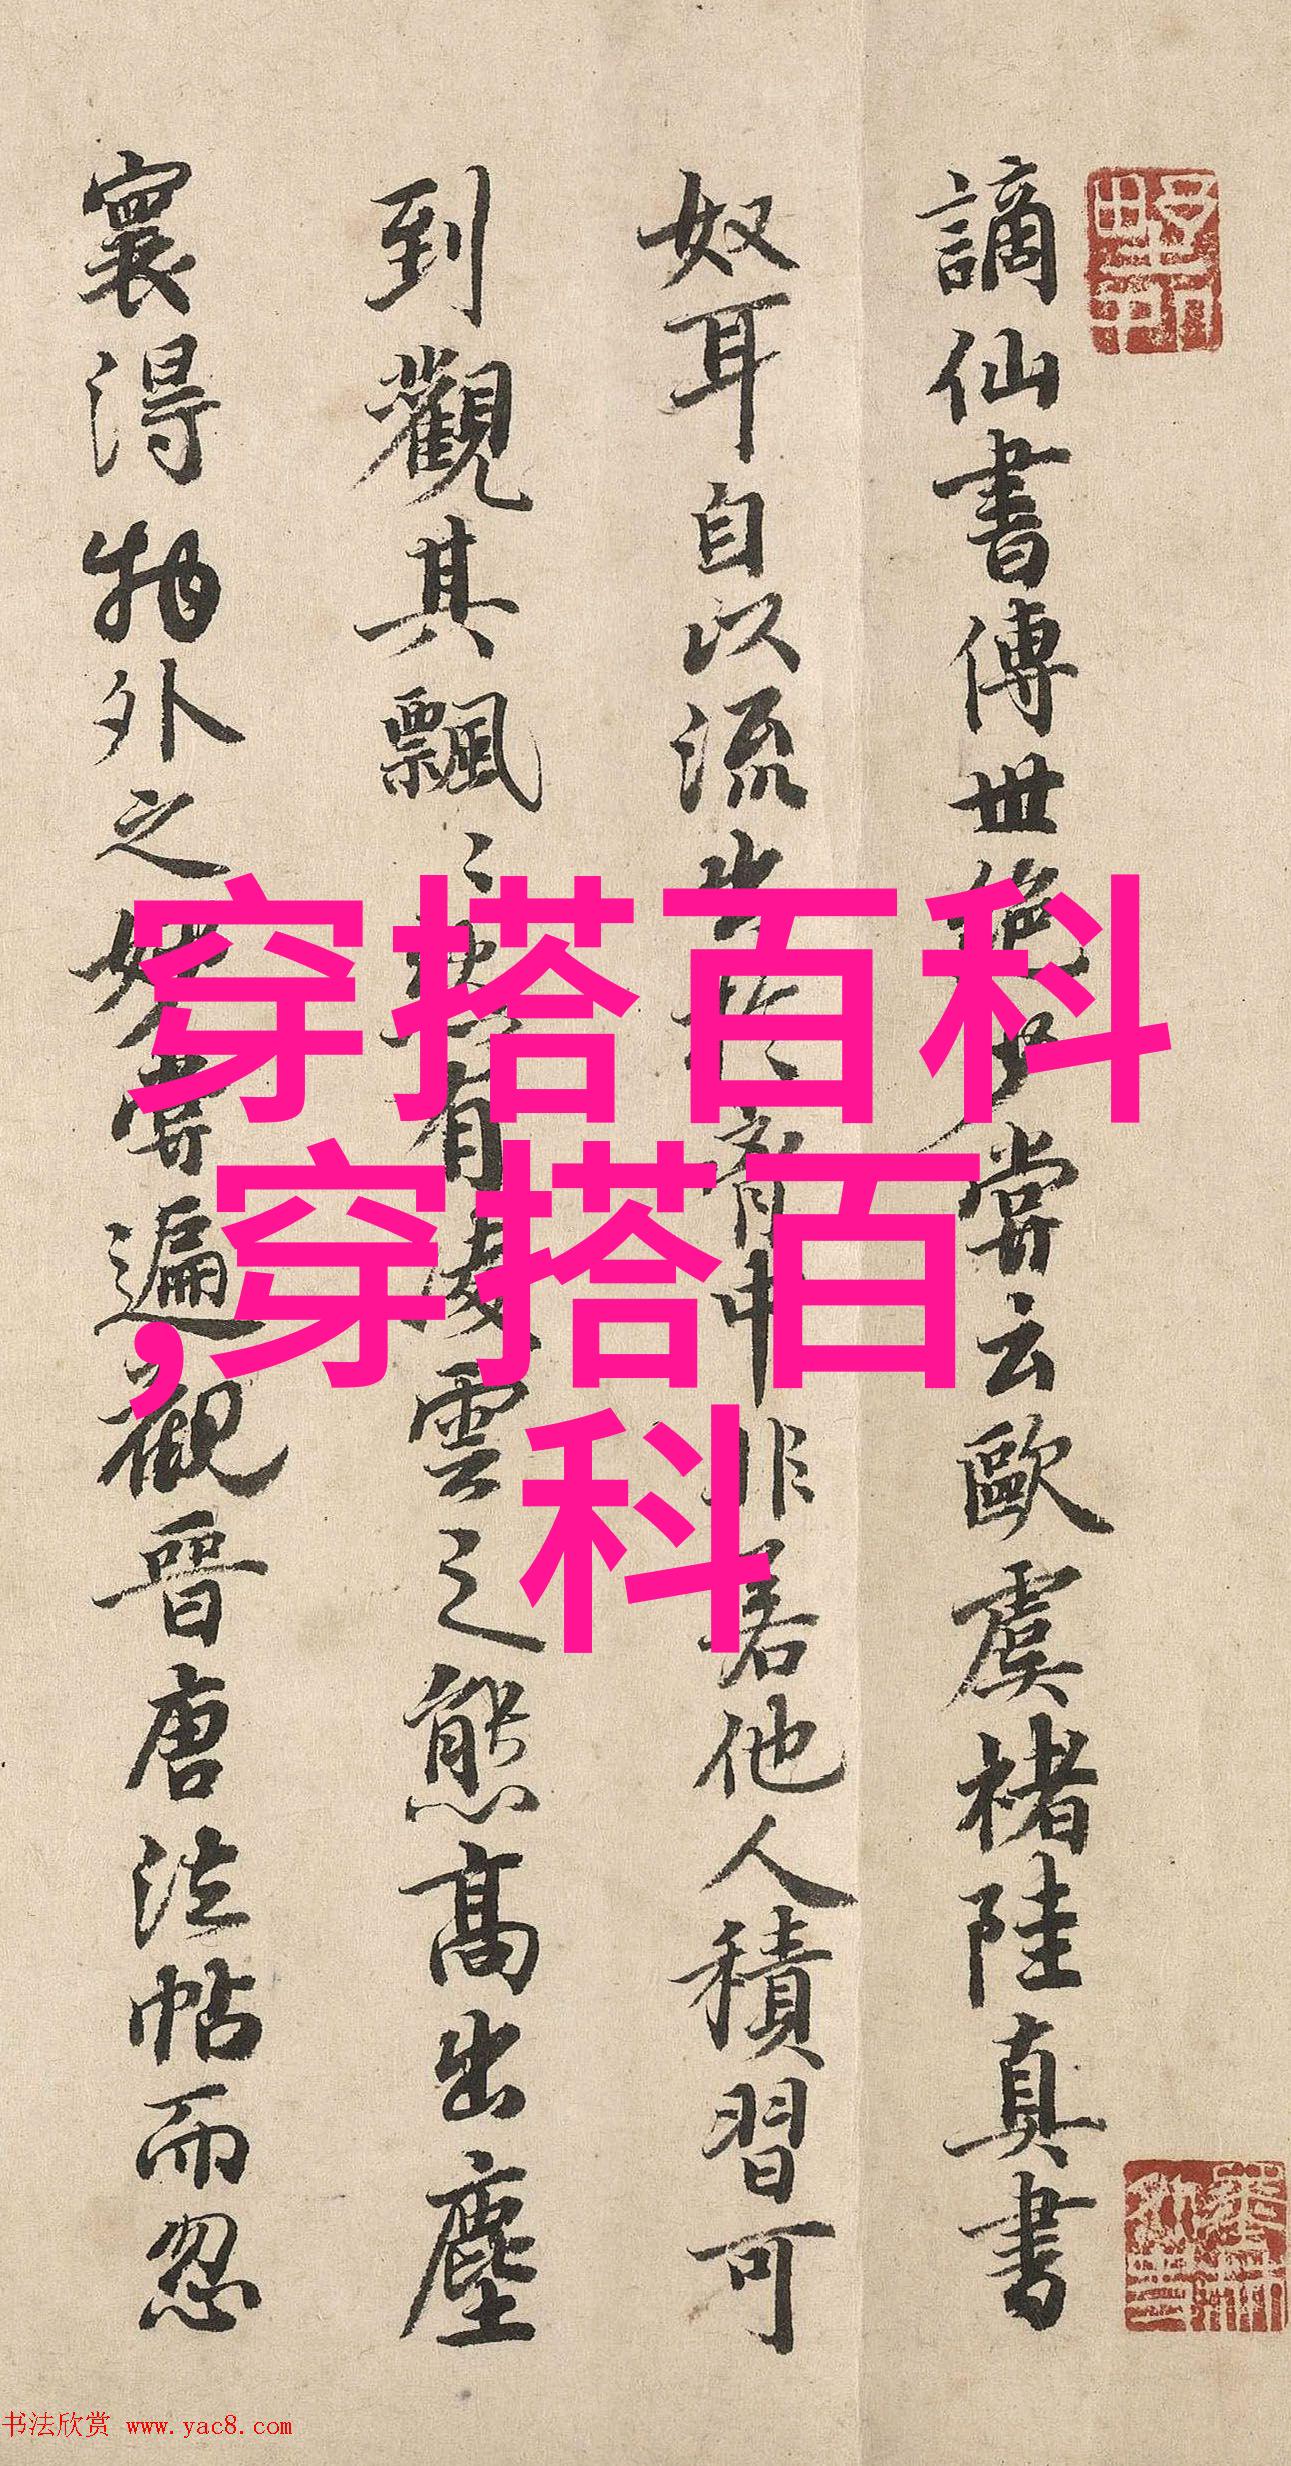 謫仙書傳世絶少嘗云歐虞褚陸真書
奴耳自以流出於胷中非若他人積習可
到觀其飄之然有凌雲之態高出塵
寰得物外之妙嘗遍觀晉唐法帖而忽
穿搭百科
,穿搭百
科
书法欣赏 www.yac8.com